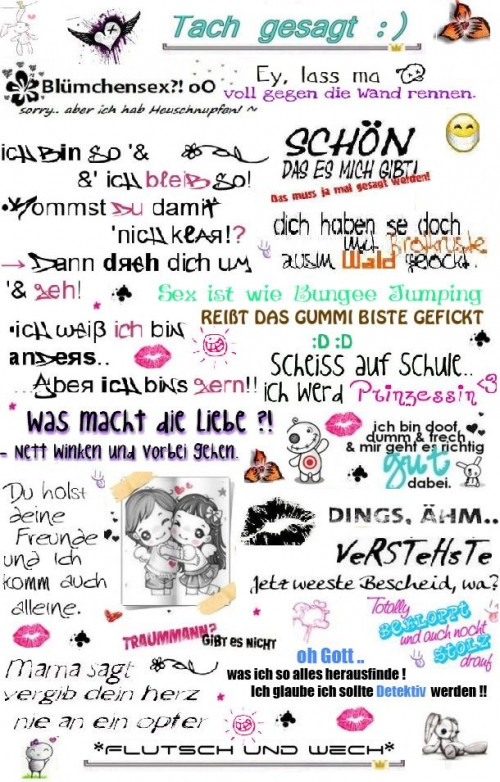 Tach gesagt :)
Blümchensex?! oO
sorry.. aber ich hab Heuschnupfen! ~
Ey, lass ma
voll gegen die Wand rennen.
ich bin so '&
&' ich bleib so!
Kommst du damit
'nich klar!?
→ Dann dreh dich um
'& geh!
SCHÖN
DAS ES MICH GIBT!
Das muss ja mal gesagt werden!
dich haben se doch
mit Brotkruste
ausm Wald gelockt.
Sex ist wie Bungee Jumping
REIßT DAS GUMMI BISTE GEFICKT
•ich weiß ich bin
anders..
...Aber ich bins gern!!
:D :D
Scheiss auf Schule..
ich werd Prinzessin <3
Was macht die Liebe ?!
- Nett winken und vorbei gehen.
ich bin doof,
dumm & frech
& mir geht es richtig
gut
dabei.
Du holst
deine
Freunde
und Ich
komm auch
alleine.
DINGS, ÄHM..
VeRSTeHsTe
Jetz weeste Bescheid, wa?
Totally
BEKLOPPT
und auch noch
STOLZ
drauf
TRAUMMANN? GIBT ES NICHT
oh Gott ..
was ich so alles herausfinde !
Ich glaube ich sollte Detektiv werden !!
Mama sagt
vergib dein herz
nie an ein opfer
*FLUTSCH UND WECH*